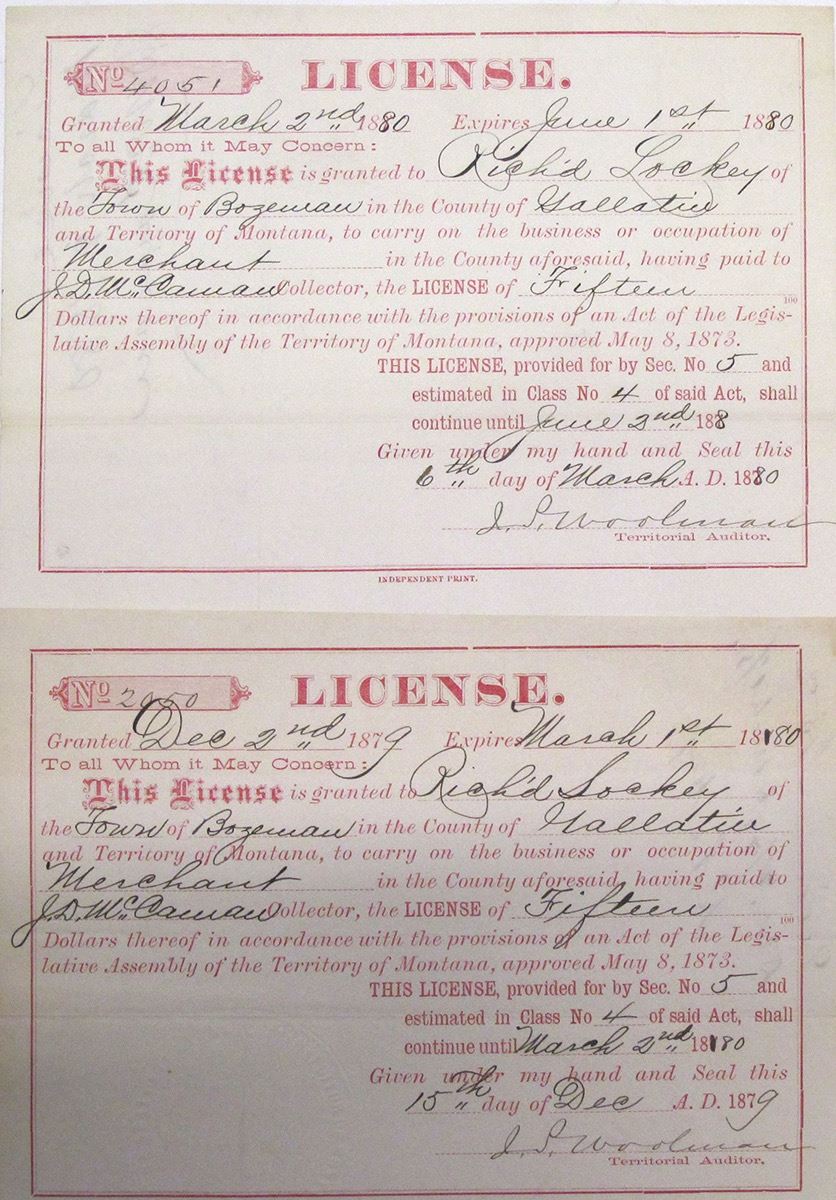 No 4051 LICENSE.
Granted March 2nd 1880 Expires June 1st 1880
To all Whom it May Concern:
This License is granted to Rich'd Lockey of
the Town of Bozeman in the County of Gallatin
and Territory of Montana, to carry on the business or occupation of
Merchant in the County aforesaid, having paid to
J. D. McCaman Collector, the LICENSE of Fifteen 100
Dollars thereof in accordance with the provisions of an Act of the Legis-
lative Assembly of the Territory of Montana, approved May 8, 1873.
THIS LICENSE, provided for by Sec. No 5 and
estimated in Class No 4 of said Act, shall
continue until June 2nd 188
Given under my hand and Seal this
6th day of March A. D. 1880
J. S. Woolman
Territorial Auditor.
INDEPENDENT PRINT.
No 2050 LICENSE.
Granted Dec 2nd 1879 Expires March 1st 1880
To all Whom it May Concern:
This License is granted to Rich'd Lockey of
the Town of Bozeman in the County of Gallatin
and Territory of Montana, to carry on the business or occupation of
Merchant in the County aforesaid, having paid to
J. D. McCaman Collector, the LICENSE of Fifteen 100
Dollars thereof in accordance with the provisions of an Act of the Legis-
lative Assembly of the Territory of Montana, approved May 8, 1873.
THIS LICENSE, provided for by Sec. No 5 and
estimated in Class No 4 of said Act, shall
continue until March 2nd 1880
Given under my hand and Seal this
15th day of Dec A. D. 1879
J. S. Woolman
Territorial Auditor.